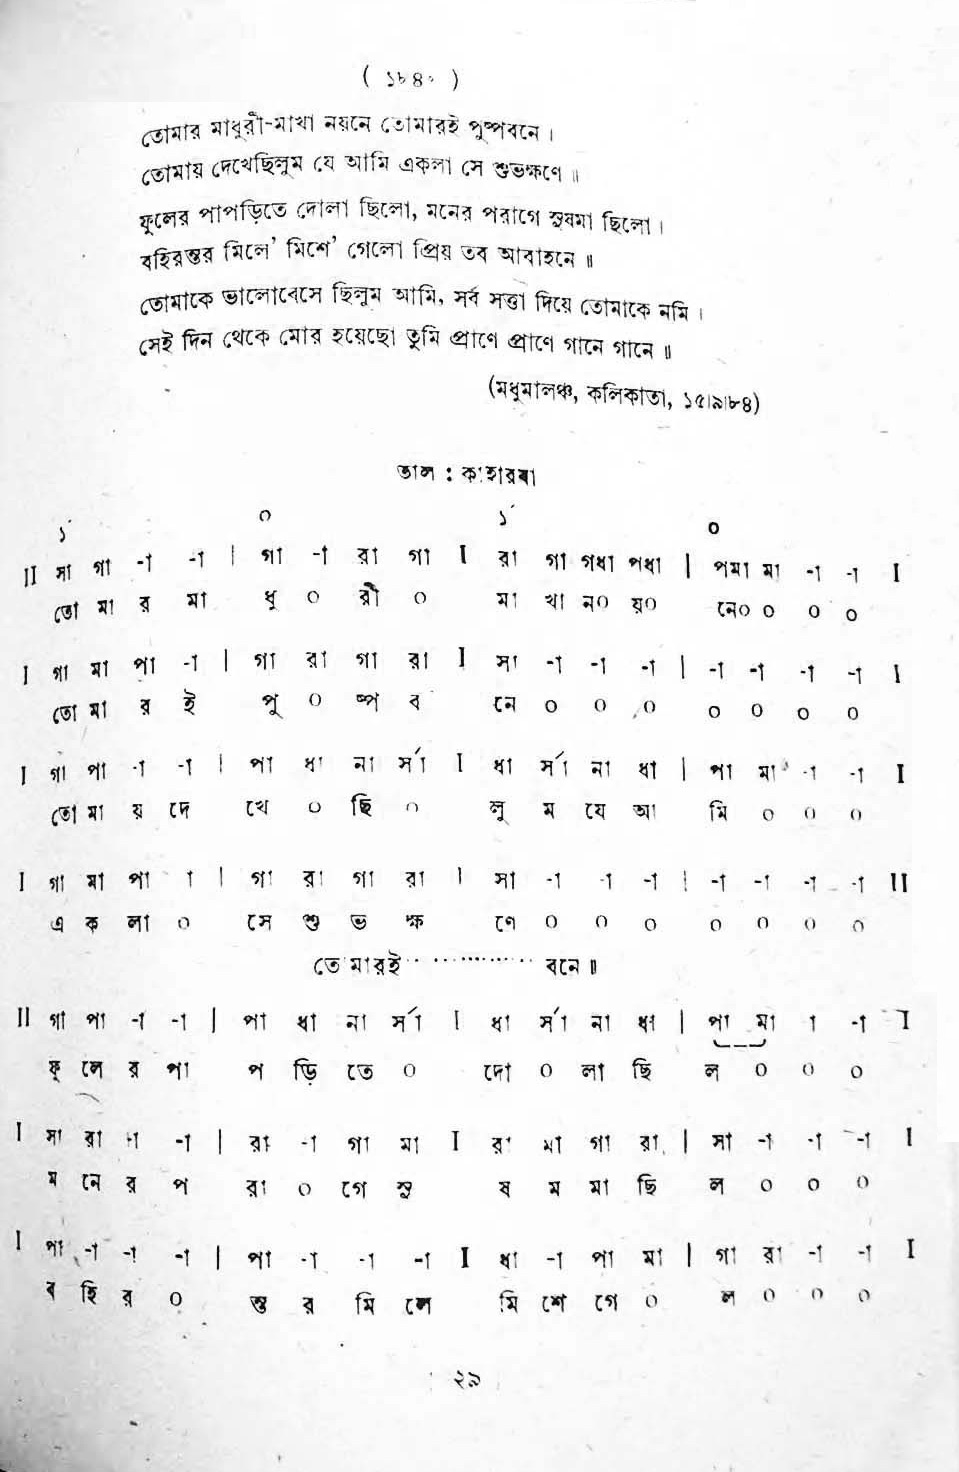 ( ১৮৪০ )
তোমার মাধুরী-মাখা নয়নে তোমারই পুষ্পবনে।
তোমায় দেখেছিলুম যে আমি একলা সে শুভক্ষণে॥
ফুলের পাপড়িতে দোলা ছিলো, মনের পরাগে সুষমা ছিলো।
বহিরন্তর মিলে' মিশে' গেলো প্রিয় তব আবাহনে॥
তোমাকে ভালোবেসে ছিলুম আমি, সর্ব সত্তা দিয়ে তোমাকে নমি।
সেই দিন থেকে মোর হয়েছো তুমি প্রাণে প্রাণে গানে গানে॥
(মধুমালঞ্চ, কলিকাতা, ১৫।৯।৮৪)
তাল : কাহারবা
১́ ০ ১́ ০
II সা গা -া -া | গা -া রা গা I রা গা গধা পধা | পমা মা -া -া I
তো মা র মা ধু ০ রী ০ মা খা ন০ য়০ নে০ ০ ০ ০
I গা মা পা -া | গা রা গা রা I সা -া -া -া | -া -া -া -া I
তো মা র ই পু ০ ষ্প ব নে ০ ০ ০ ০ ০ ০ ০
I গা পা -া -া | পা ধা না র্সা I ধা র্সা না ধা | পা মা -া -া I
তো মা য় দে খে ০ ছি ০ লু ম যে আ মি ০ ০ ০
I গা মা পা া | গা রা গা রা I সা -া -া -া | -া -া -া -া II
এ ক লা ০ সে শু ভ ক্ষ ণে ০ ০ ০ ০ ০ ০ ০
তোমারই·············বনে॥
II গা পা -া -া | পা ধা না র্সা I ধা র্সা না ধা | পা মা া -া I
ফু লে র পা প ড়ি তে ০ দো ০ লা ছি ল ০ ০ ০
I সা রা -া -া | রা -া গা মা I রা মা গা রা | সা -া -া -া I
ম নে র প রা ০ গে সু ষ ম মা ছি ল ০ ০ ০
I পা -া -া -া | পা -া -া -া I ধা -া পা মা | গা রা -া -া I
ব হি র ০ ন্ত র মি লে মি শে গে ০ ল ০ ০ ০
২৯